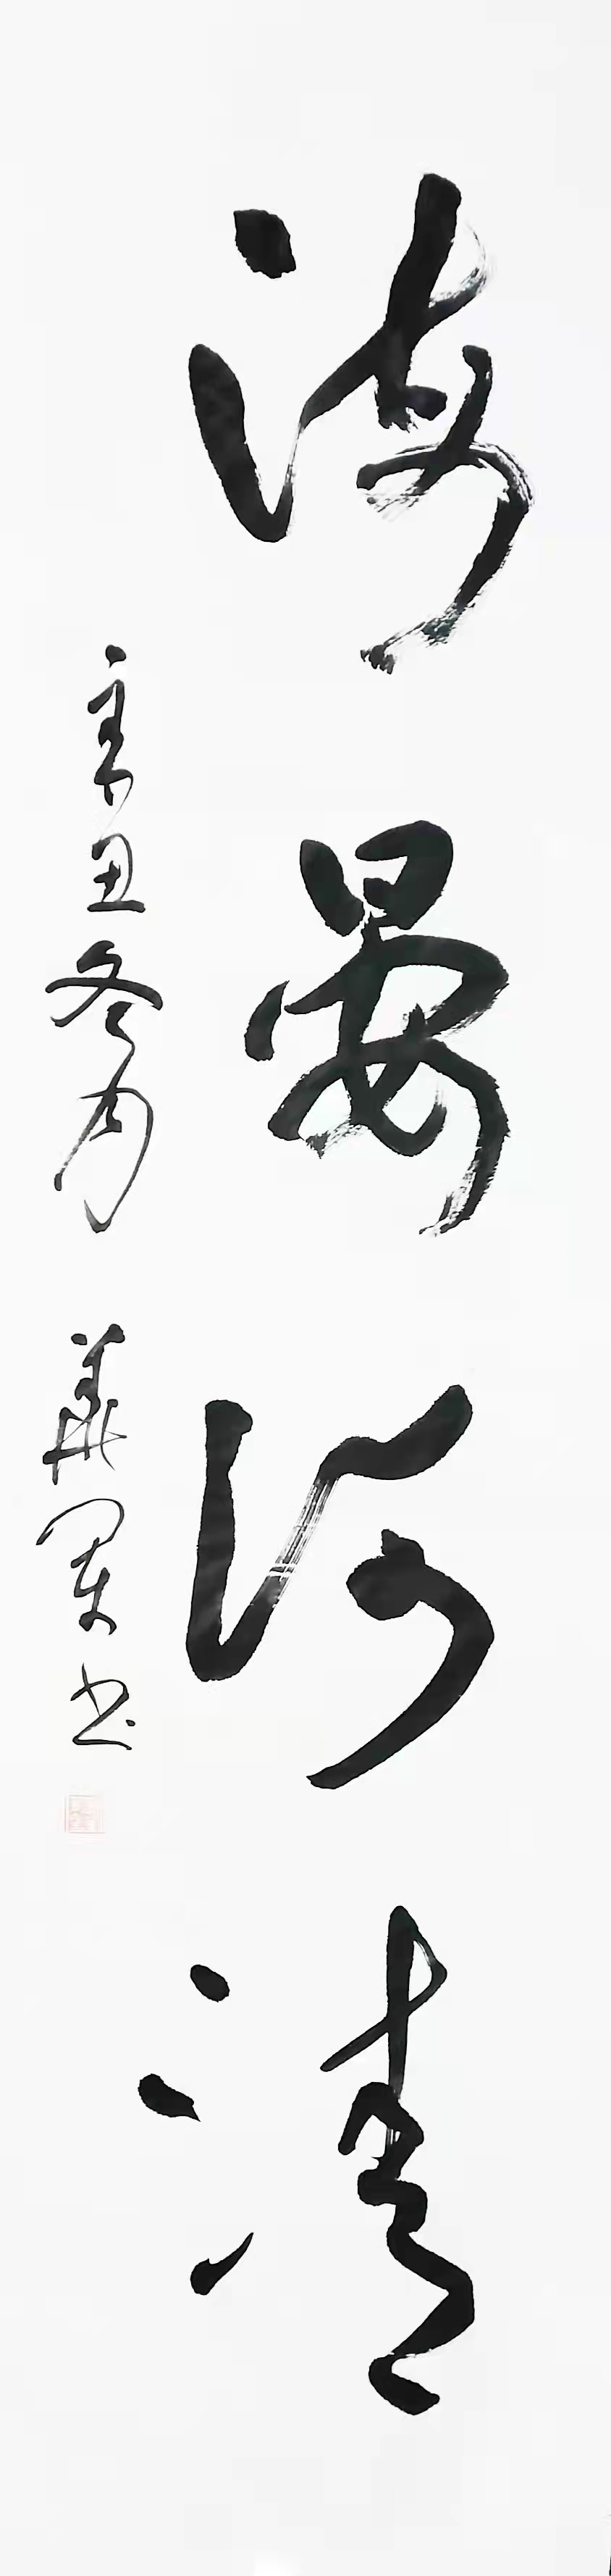 海晏河清
辛丑冬月 義軍书